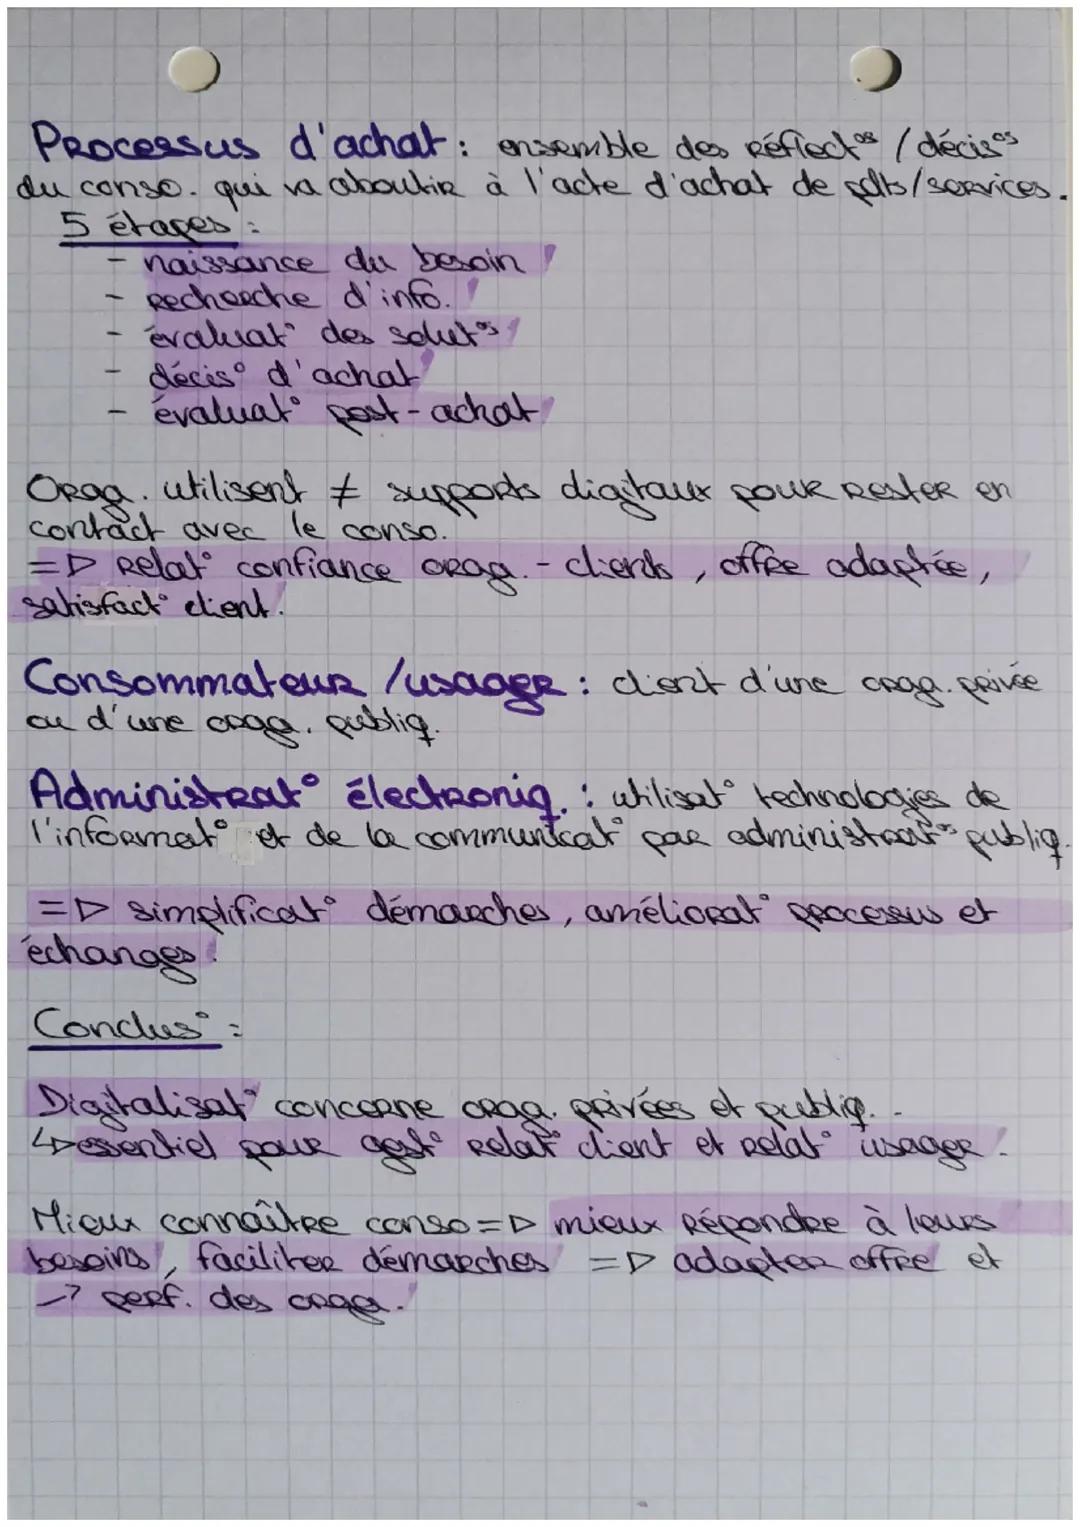 Processus d'achat : ensemble des réflect°s / décis°s
du conso. qui va aboutir à l'acte d'achat de pdts/services.
5 étapes :
- naissance du besoin
- recherche d'info.
- évaluat° des solut°s
- décis° d'achat
- évaluat° post-achat
Orga. utilisent ≠ supports digitaux pour rester en
contact avec le conso.
=> Relat° confiance orga. - clients, offre adaptée,
satisfact° client.
Consommateur /usager : client d'une orga. privée
ou d'une orga. publiq.
Administrat° électroniq. : utilisat° technologies de
l'informat° et de la communicat° par administrat°s publiq.
=> simplificat° démarches, améliorat° processus et
échanges.
Conclus° :
Digitalisat° concerne orga. privées et publiq.
↳ essentiel pour gest° relat° client et relat° usager.
Mieux connaître conso => mieux répondre à leurs
besoins, faciliter démarches => adapter offre et
↗ perf. des orga.